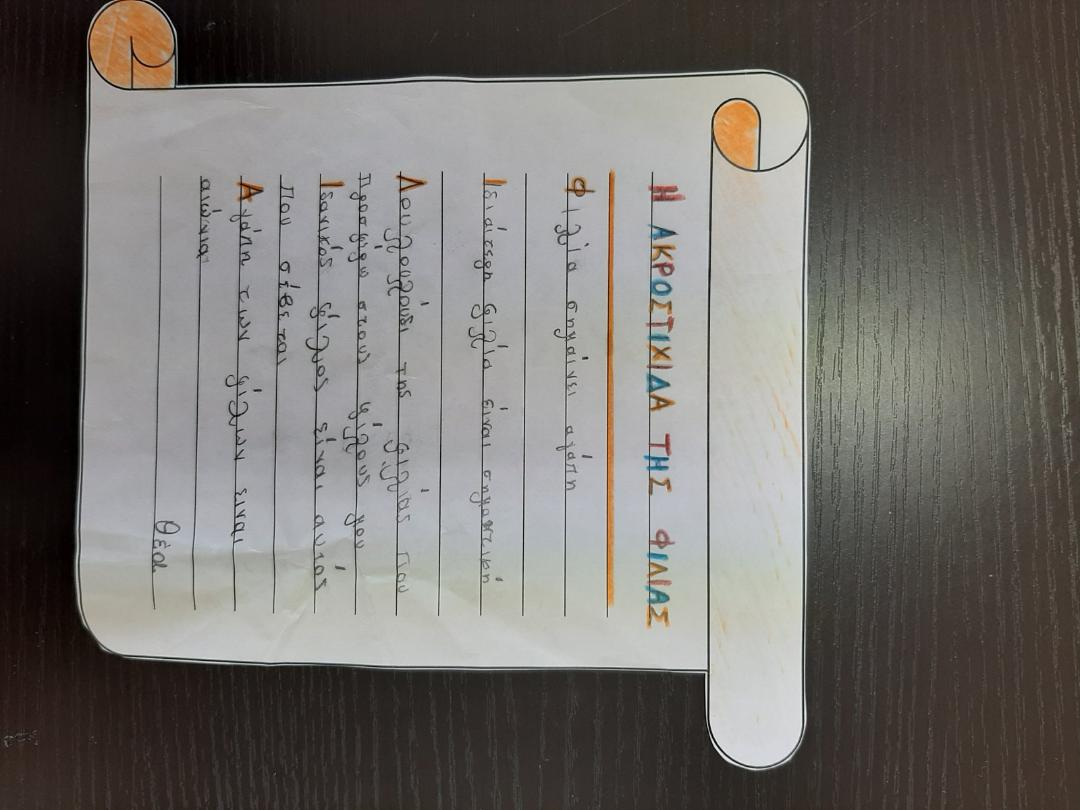 Η ΑΚΡΟΣΤΙΧΙΔΑ ΤΗΣ ΦΙΛΙΑΣ
Φιλία σημαίνει αγάπη
Ιδιάιτερη φιλία είναι σημαντική
Λουλουλούδι της φιλίας που
προσφέρω στους φίλους μου
Ιδανικός φίλος είναι αυτός
που σέβεται
Αγάπη των φίλων είναι
αιώνια
Θέα